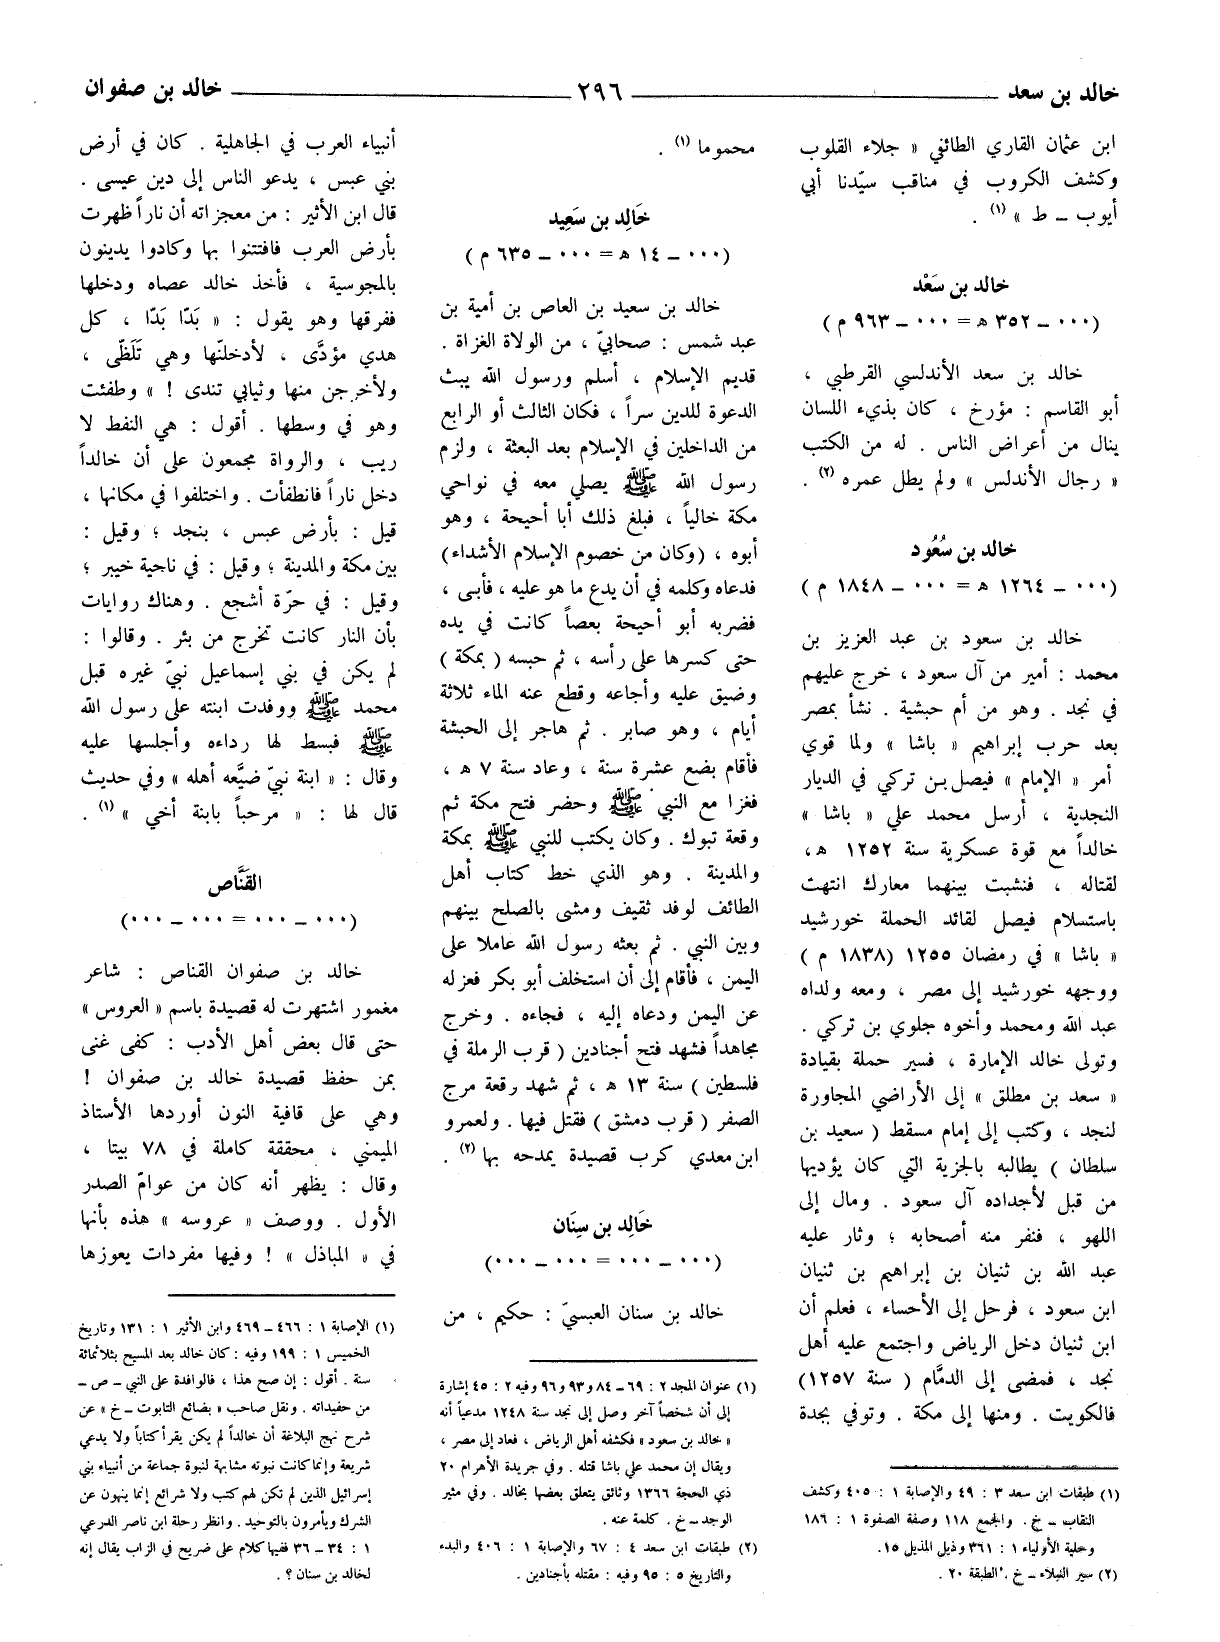 خالد بن سعد ــــــ ٢٩٦ ــــــ خالد بن صفوان
ابن عثمان القاري الطائفي « جلاء القلوب
وكشف الكروب في مناقب سيّدنا أبي
أيوب ــ ط » (١) .
خالد بن سَعْد
(٠٠٠ ــ ٣٥٢ هـ = ٠٠٠ ــ ٩٦٣ م )
خالد بن سعد الأندلسي القرطبي ،
أبو القاسم : مؤرخ ، كان بذيء اللسان
ينال من أعراض الناس . له من الكتب
« رجال الأندلس » ولم يطل عمره (٢) .
خالد بن سُعُود
(٠٠٠ ــ ١٢٦٤ هـ = ٠٠٠ ــ ١٨٤٨ م )
خالد بن سعود بن عبد العزيز بن
محمد : أمير من آل سعود ، خرج عليهم
في نجد . وهو من أم حبشية . نشأ بمصر
بعد حرب إبراهيم « باشا » ولما قوي
أمر « الإمام » فيصل بن تركي في الديار
النجدية ، أرسل محمد علي « باشا »
خالداً مع قوة عسكرية سنة ١٢٥٢ هـ،
لقتاله ، فنشبت بينهما معارك انتهت
باستسلام فيصل لقائد الحملة خورشيد
« باشا » في رمضان ١٢٥٥ (١٨٣٨ م )
ووجهه خورشيد إلى مصر ، ومعه ولداه
عبد الله ومحمد وأخوه جلوي بن تركي .
وتولى خالد الإمارة ، فسير حملة بقيادة
« سعد بن مطلق » إلى الأراضي المجاورة
لنجد ، وكتب إلى إمام مسقط ( سعيد بن
سلطان ) يطالبه بالجزية التي كان يؤديها
من قبل لأجداده آل سعود . ومال إلى
اللهو ، فنفر منه أصحابه ؛ وثار عليه
عبد الله بن ثنيان بن إبراهيم بن ثنيان
ابن سعود ، فرحل إلى الأحساء ، فعلم أن
ابن ثنيان دخل الرياض واجتمع عليه أهل
نجد ، فمضى إلى الدمّام ( سنة ١٢٥٧)
فالكويت . ومنها إلى مكة . وتوفي بجدة
(١) طبقات ابن سعد ٣ : ٤٩ والإصابة ١ : ٤٠٥ وكشف
النقاب ــ خ . والجمع ١١٨ وصفة الصفوة ١ : ١٨٦
وحلية الأولياء ١ : ٣٦١ وذيل المذيل ١٥.
(٢) سير النبلاء ــ خ ، الطبقة ٢٠ .
محموما (١) .
خَالِد بن سَعِيد
(٠٠٠ ــ ١٤ هـ = ٠٠٠ ــ ٦٣٥ م )
خالد بن سعيد بن العاص بن أمية بن
عبد شمس : صحابيّ ، من الولاة الغزاة .
قديم الإسلام ، أسلم ورسول الله يبث
الدعوة للدين سراً ، فكان الثالث أو الرابع
من الداخلين في الإسلام بعد البعثة ، ولزم
رسول الله ﷺ يصلي معه في نواحي
مكة خالياً ، فبلغ ذلك أبا أحيحة ، وهو
أبوه ، (وكان من خصوم الإسلام الأشداء)
فدعاه وكلمه في أن يدع ما هو عليه ، فأبى ،
فضربه أبو أحيحة بعصاً كانت في يده
حتى كسرها على رأسه ، ثم حبسه ( بمكة )
وضيق عليه وأجاعه وقطع عنه الماء ثلاثة
أيام ، وهو صابر . ثم هاجر إلى الحبشة
فأقام بضع عشرة سنة ، وعاد سنة ٧ هـ ،
فغزا مع النبي ﷺ وحضر فتح مكة ثم
وقعة تبوك . وكان يكتب للنبي ﷺ بمكة
والمدينة . وهو الذي خط كتاب أهل
الطائف لوفد ثقيف ومشى بالصلح بينهم
وبين النبي . ثم بعثه رسول الله عاملا على
اليمن ، فأقام إلى أن استخلف أبو بكر فعزله
عن اليمن ودعاه إليه ، فجاءه . وخرج
مجاهداً فشهد فتح أجنادين ( قرب الرملة في
فلسطين ) سنة ١٣ هـ ، ثم شهد وقعة مرج
الصفر ( قرب دمشق ) فقتل فيها . ولعمرو
ابن معدي كرب قصيدة يمدحه بها (٢) .
خَالِد بن سِنَان
(٠٠٠ ــ ٠٠٠ = ٠٠٠ ــ ٠٠٠)
خالد بن سنان العبسيّ : حكيم ، من
(١) عنوان المجد ٢ : ٦٩ ــ ٨٤ و ٩٣ و ٩٦ وفيه ٢ : ٤٥ إشارة
إلى أن شخصاً آخر وصل إلى نجد سنة ١٢٤٨ مدعياً أنه
« خالد بن سعود » فكشفه أهل الرياض ، فعاد إلى مصر ،
ويقال إن محمد علي باشا قتله . وفي جريدة الأهرام ٢٠
ذي الحجة ١٣٦٦ وثائق يتعلق بعضها بخالد . وفي مثير
الوجد ــ خ . كلمة عنه .
(٢) طبقات ابن سعد ٤ : ٦٧ والإصابة ١ : ٤٠٦ والبدء
والتاريخ ٥ : ٩٥ وفيه : مقتله بأجنادين .
أنبياء العرب في الجاهلية . كان في أرض
بني عبس ، يدعو الناس إلى دين عيسى .
قال ابن الأثير : من معجزاته أن ناراً ظهرت
بأرض العرب فافتتنوا بها وكادوا يدينون
بالمجوسية ، فأخذ خالد عصاه ودخلها
ففرقها وهو يقول : « بَدّا بَدّا ، كل
هدي مؤدَّى ، لأدخلنّها وهي تَلَظّى ،
ولأخرجن منها وثيابي تندى ! » وطفئت
وهو في وسطها . أقول : هي النفط لا
ريب ، والرواة مجمعون على أن خالداً
دخل ناراً فانطفأت . واختلفوا في مكانها ،
قيل : بأرض عبس ، بنجد ؛ وقيل :
بين مكة والمدينة ؛ وقيل : في ناحية خيبر ؛
وقيل : في حرّة أشجع . وهناك روايات
بأن النار كانت تخرج من بئر . وقالوا :
لم يكن في بني إسماعيل نبيّ غيره قبل
محمد ﷺ ووفدت ابنته على رسول الله
ﷺ فبسط لها رداءه وأجلسها عليه
وقال : « ابنة نبيّ ضيَّعه أهله » وفي حديث
قال لها : « مرحباً بابنة أخي » (١) .
القَنَّاص
(٠٠٠ ــ ٠٠٠ = ٠٠٠ ــ ٠٠٠)
خالد بن صفوان القناص : شاعر
مغمور اشتهرت له قصيدة باسم « العروس »
حتى قال بعض أهل الأدب : كفى غنى
بمن حفظ قصيدة خالد بن صفوان !
وهي على قافية النون أوردها الأستاذ
الميمني ، محققة كاملة في ٧٨ بيتا ،
وقال : يظهر أنه كان من عوامّ الصدر
الأول . ووصف « عروسه » هذه بأنها
في « المباذل » ! وفيها مفردات يعوزها
(١) الإصابة ١ : ٤٦٦ ــ ٤٦٩ وابن الأثير ١ : ١٣١ وتاريخ
الخميس ١ : ١٩٩ وفيه : كان خالد بعد المسيح بثلاثمائة
سنة . أقول : إن صح هذا ، فالوافدة على النبي ــ ص ــ
من حفيداته . ونقل صاحب « بضائع التابوت ــ خ » عن
شرح نهج البلاغة أن خالداً لم يكن يقرأ كتاباً ولا يدعي
شريعة وإنما كانت نبوته مشابهة لنبوة جماعة من أنبياء بني
إسرائيل الذين لم تكن لهم كتب ولا شرائع إنما ينهون عن
الشرك ويأمرون بالتوحيد . وانظر رحلة ابن ناصر الدرعي
١ : ٣٤ ــ ٣٦ ففيها كلام على ضريح في الزاب يقال إنه
لخالد بن سنان ؟ .